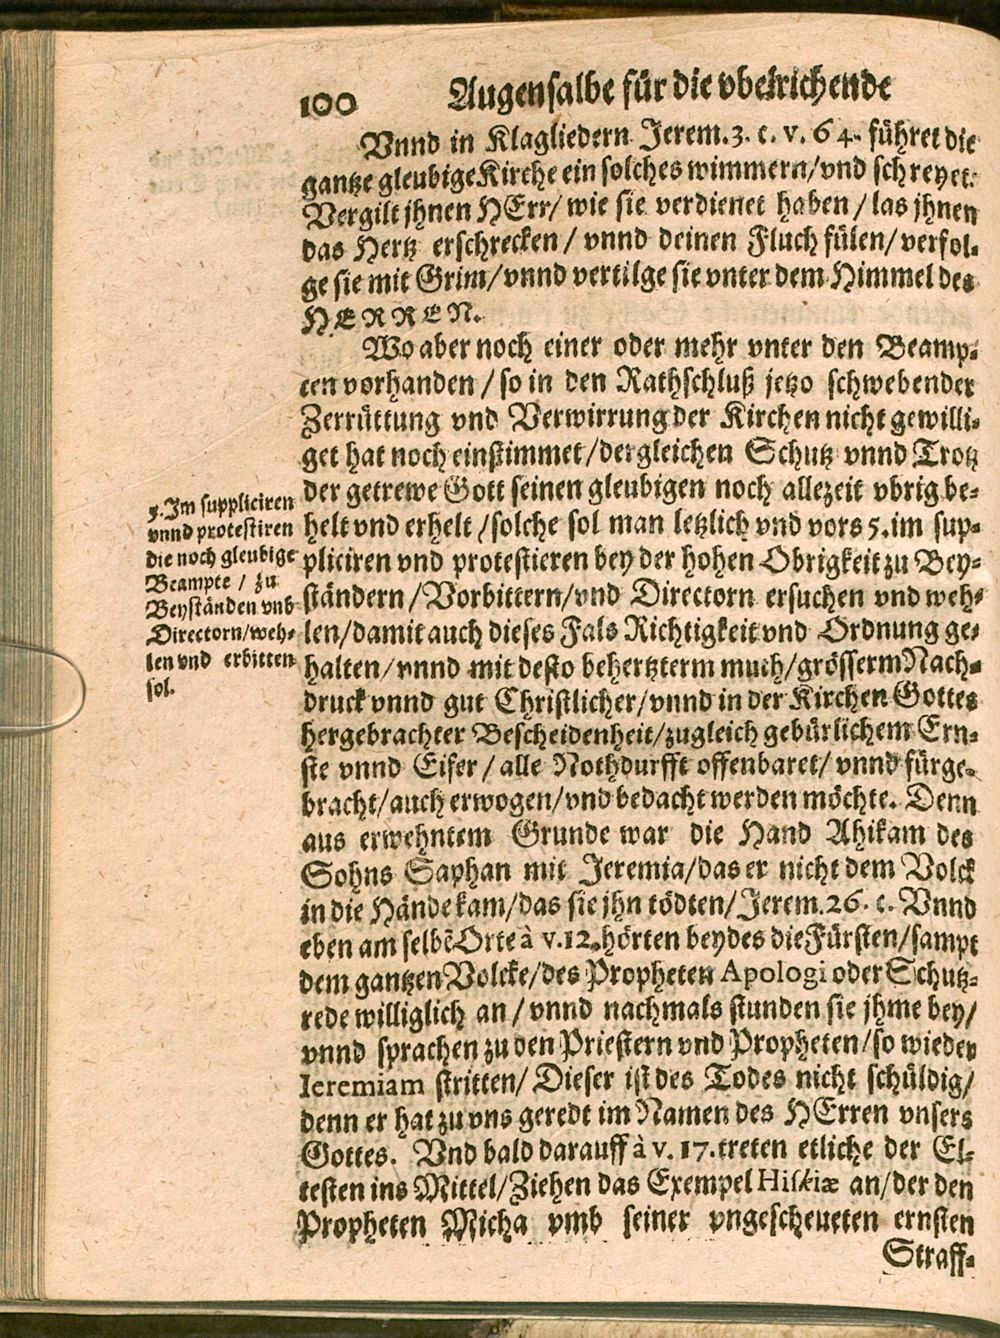 100 Augensalbe für die vbelrichende
Vnnd in Klagliedern Jerem. 3. c. v. 64. führet die
gantze gleubige Kirche ein solches wimmern/vnd schreyet:
Vergilt jhnen HErr/ wie sie verdienet haben / las jhnen
das Hertz erschrecken / vnnd deinen Fluch fülen/ verfol-
ge sie mit Grim/vnnd vertilge sie vnter dem Himmel des
HERREN.
Wo aber noch einer oder mehr vnter den Beamp-
ten vorhanden / so in den Rathschluß jetzo schwebender
Zerrüttung vnd Verwirrung der Kirchen nicht gewilli-
get hat noch einstimmet/dergleichen Schutz vnnd Trotz
der getrewe Gott seinen gleubigen noch allezeit vbrig be-
helt vnd erhelt /solche sol man letzlich vnd vors 5. im sup-
pliciren vnd protestieren bey der hohen Obrigkeit zu Bey-
ständern /Vorbittern/vnd Directorn ersuchen vnd weh-
len/damit auch dieses Fals Richtigkeit vnd Ordnung ge-
halten/vnnd mit desto behertzterm muth/grösserm Nach-
druck vnnd gut Christlicher/vnnd in der Kirchen Gottes
hergebrachter Bescheidenheit/zugleich gebürlichem Ern-
ste vnnd Eifer / alle Nothdurfft offenbaret/ vnnd fürge-
bracht/auch erwogen/vnd bedacht werden möchte. Denn
aus erwehntem Grunde war die Hand Ahikam des
Sohns Saphan mit Jeremia/das er nicht dem Volck
in die Hände kam/das sie jhn tödten/Jerem. 26. c. Vnnd
eben am selbē Orte à v. 12. hörten beydes die Fürsten/sampt
dem gantzen Volcke/des Propheten Apologi oder Schutz-
rede williglich an / vnnd nachmals stunden sie jhme bey/
vnnd sprachen zu den Priestern vnd Propheten/so wieder
Ieremiam stritten/ Dieser ist des Todes nicht schüldig/
denn er hat zu vns geredt im Namen des HErren vnsers
Gottes. Vnd bald darauff à v. 17. treten etliche der El-
testen ins Mittel/Ziehen das Exempel Hiskiæ an/der den
Propheten Micha vmb seiner vngescheueten ernsten
Straff-
5. Im suppliciren
vnnd protestiren
die noch gleubige
Beampte / zu
Beyständen vnd
Directorn/weh-
len vnd erbitten
sol.